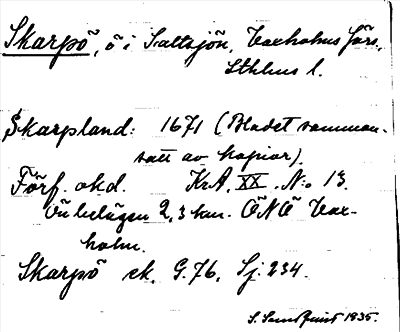 Skarpö, ö i Saltsjön, Vaxholms förs.
Sthlms l.
Skarpland: 1671 (Bladet samman-
satt av kopior).
Förf. okd. KrA, XX. No 13.
Ön belägen 2,3 km. ÖNÖ Vax-
holm.
Skarpö ek. G.76, Sj. 234.
S. 1935.